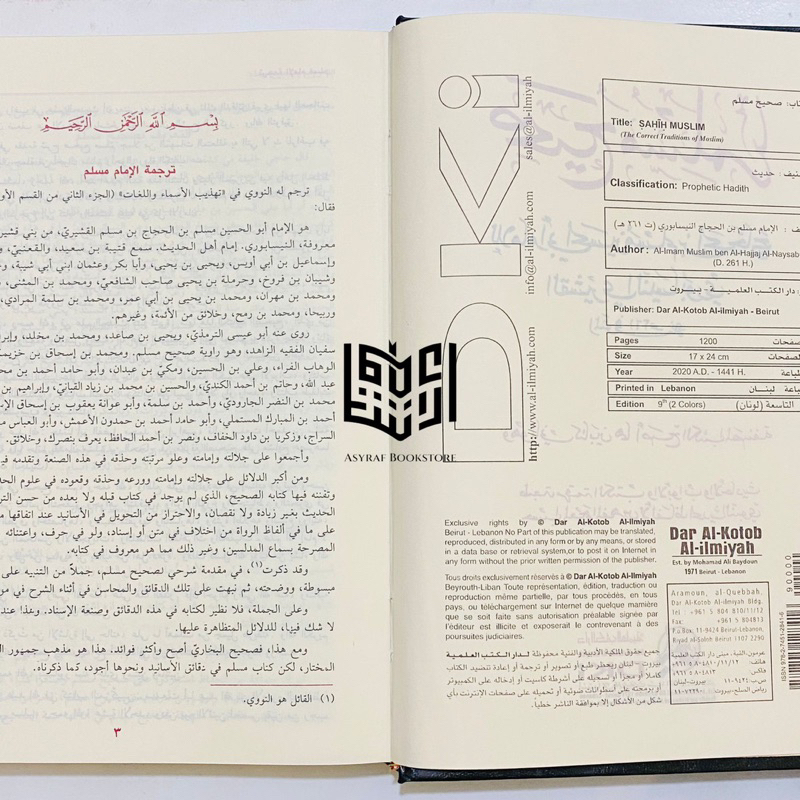 بِسْمِ اللَّهِ الرَّحْمَٰنِ الرَّحِيمِ
ترجمة الإمام مسلم
ترجم له النووي في «تهذيب الأسماء واللغات» (الجزء الثاني من القسم الأول
فقال:
هو الإمام أبو الحسين مسلم بن الحجاج بن مسلم القشيري، من بني قشير
معروفة، النيسابوري. إمام أهل الحديث. سمع قتيبة بن سعيد، والقعنبي،
وإسماعيل بن أبي أويس، ويحيى بن يحيى، وأبا بكر وعثمان ابني أبي شيبة،
وشيبان بن فروخ، وحرملة بن يحيى صاحب الشافعي، ومحمد بن المثنى،
ومحمد بن مهران، ومحمد بن يحيى بن أبي عمر، ومحمد بن سلمة المرادي،
وربيحا، ومحمد بن رمح، وخلائق من الأئمة، وغيرهم.
روى عنه أبو عيسى الترمذي، ويحيى بن صاعد، ومحمد بن مخلد،
سفيان الفقيه الزاهد، وهو راوية صحيح مسلم. ومحمد بن إسحاق بن
الوهاب الفراء، وعلي بن الحسين، ومكي بن عبدان، وأبو حامد أحمد بن
عبد الله، وحاتم بن أحمد الكندي، والحسين بن محمد بن زياد القباني، وإبراهيم بن
محمد بن النضر الجارودي، وأحمد بن سلمة، وأبو عوانة يعقوب بن إسحاق
أحمد بن المبارك المستملي، وأبو حامد أحمد بن حمدون الأعمش، وأبو العباس
السراج، وزكريا بن داود الخفاف، ونصر بن أحمد الحافظ، يعرف بنصرك، وخلائق.
وأجمعوا على جلالته وإمامته وعلو مرتبته وحذقه في هذه الصنعة وتقدمه
ومن أكبر الدلائل على جلالته وإمامته وورعه وحذقه وقعوده في علوم
وتفننه فيها كتابه الصحيح، الذي لم يوجد في كتاب قبله ولا بعده من حسن
الحديث بغير زيادة ولا نقصان، والاحتراز من التحويل في الأسانيد عند اتفاقها
على ما في ألفاظ الرواة من اختلاف في متن أو إسناد، ولو في حرف، واعتنائه
المصرحة بسماع المدلسين، وغير ذلك مما هو معروف في كتابه.
وقد ذكرت(١)، في مقدمة شرحي لصحيح مسلم، جملاً من التنبيه على
مبسوطة، وواضحة، ثم نبهت على تلك الدقائق والمحاسن في أثناء الشرح في
وعلى الجملة، فلا نظير لكتابه في هذه الدقائق وصنعة الإسناد. وهذا عند
لا شك فيها، للدلائل المتظاهرة عليها.
ومع هذا، فصحيح البخاري أصح وأكثر فوائد. هذا هو مذهب جمهور
المختار، لكن كتاب مسلم في دقائق الأسانيد ونحوها أجود، كما ذكرناه.
(١) القائل هو النووي.
٣
ASYRAF BOOKSTORE
http://www.al-ilmiyah.com info@al-ilmiyah.com sales@al-ilmiyah.com
صحيح مسلم
Title: ṢAḤĪḤ MUSLIM
(The Correct Traditions of Muslim)
حديث
Classification: Prophetic Hadith
الإمام مسلم بن الحجاج النيسابوري (ت ٢٦١ هـ)
Author: Al-Imam Muslim ben Al-Hajjaj
(D. 261 H.)
دار الكتب العلمية - بيروت
Publisher: Dar Al-Kotob Al-ilmiyah - Beirut
Pages 1200
Size 17 x 24 cm
Year 2020 A.D. - 1441 H.
Printed in Lebanon لبنان
Edition 9th (2 Colors) التاسعة (لونان)
Exclusive rights by © Dar Al-Kotob Al-ilmiyah
Beirut - Lebanon No Part of this publication may be translated,
reproduced, distributed in any form or by any means, or stored
in a data base or retrieval system,or to post it on Internet in
any form without the prior written permission of the publisher.
Tous droits exclusivement réservés à © Dar Al-Kotob Al-ilmiyah
Beyrouth-Liban Toute représentation, édition, traduction ou
reproduction même partielle, par tous procédés, en tous
pays, ou téléchargement sur Internet de quelque manière
que se soit faite sans autorisation préalable signée par
l'éditeur est illicite et exposerait le contrevenant à des
poursuites judiciaires.
جميع حقوق الملكية الأدبية والفنية محفوظة لدار الكتب العلمية
بيروت - لبنان ويحظر طبع أو تصوير أو ترجمة أو إعادة تنضيد الكتاب
كاملاً أو مجزأ أو تسجيله على أشرطة كاسيت أو إدخاله على الكمبيوتر
أو برمجته على أسطوانات ضوئية أو تحميله على صفحات الإنترنت بأي
شكل من الأشكال إلا بموافقة الناشر خطياً.
Dar Al-Kotob
Al-ilmiyah
Est. by Mohamad Ali Baydoun
1971 Beirut - Lebanon
Aramoun, al-Quebbah,
Dar Al-Kotob Al-ilmiyah Bldg.
Tel: +961 5 804 810/11/12
Fax: +961 5 804813
P.o.Box: 11-9424 Beirut-Lebanon,
Riyad al-Soloh Beirut 1107 2290
عرمون، القبة، مبنى دار الكتب العلمية
90000